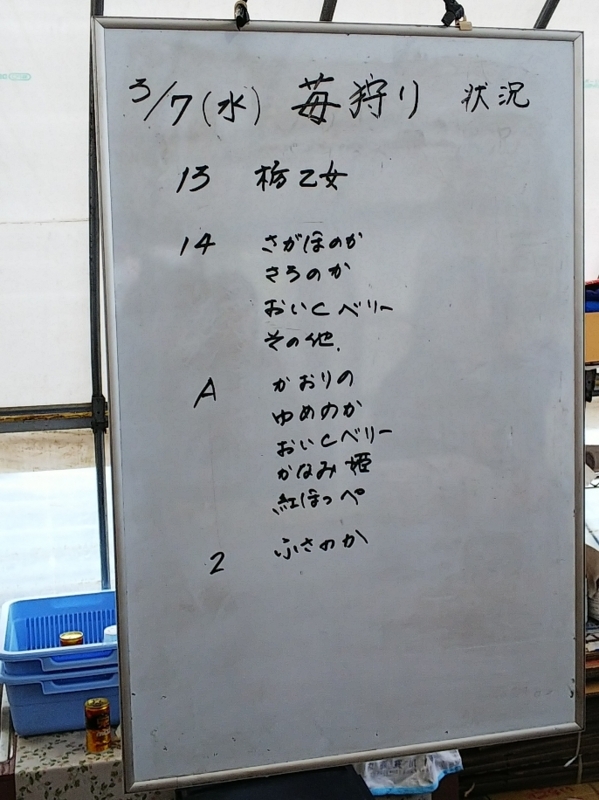 3/7(水) 苺狩り 状況
13 栃乙女
14 さがほのか
さちのか
おいCベリー
その他.
A かおりの
ゆめのか
おいCベリー
かなみ姫
紅ほっぺ
2 ふさのか